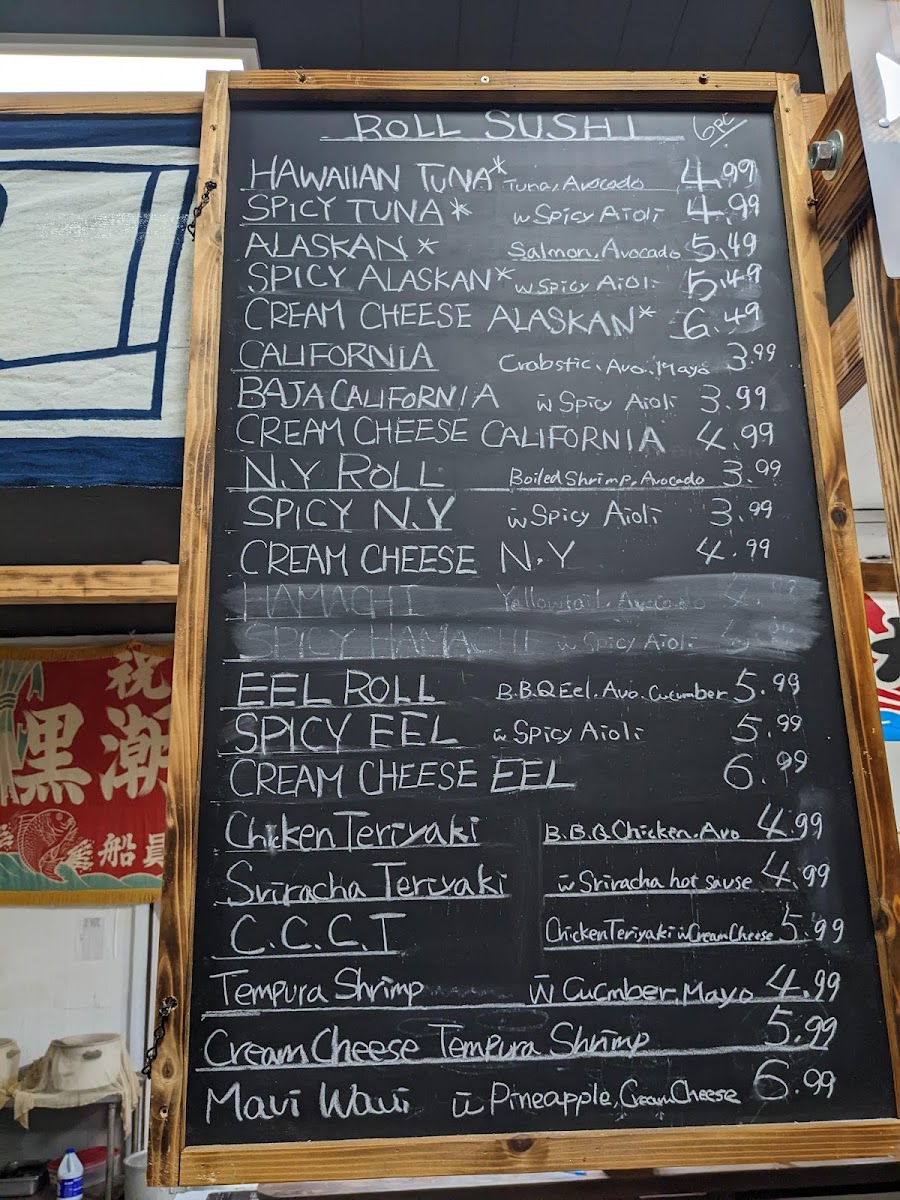 ROLL SUSHI 6PC/
HAWAIIAN TUNA* Tuna, Avocado 4.99
SPICY TUNA* w Spicy Aioli 4.99
ALASKAN* Salmon, Avocado 5.49
SPICY ALASKAN* w Spicy Aioli 5.49
CREAM CHEESE ALASKAN* 6.49
CALIFORNIA Crabstic, Avo, Mayo 3.99
BAJA CALIFORNIA w Spicy Aioli 3.99
CREAM CHEESE CALIFORNIA 4.99
N.Y ROLL Boiled Shrimp, Avocado 3.99
SPICY N.Y w Spicy Aioli 3.99
CREAM CHEESE N.Y 4.99
HAMACHI Yellowtail, Avocado
SPICY HAMACHI w Spicy Aioli
EEL ROLL B.B.Q Eel, Avo, Cucumber 5.99
SPICY EEL w Spicy Aioli 5.99
CREAM CHEESE EEL 6.99
Chicken Teriyaki B.B.Q Chicken, Avo 4.99
Sriracha Teriyaki w Sriracha hot sause 4.99
C.C.C.T Chicken Teriyaki w Cream Cheese 5.99
Tempura Shrimp w Cucmber, Mayo 4.99
Cream Cheese Tempura Shrimp 5.99
Maui Waui w Pineapple, Cream Cheese 6.99
祝
黒潮
船員